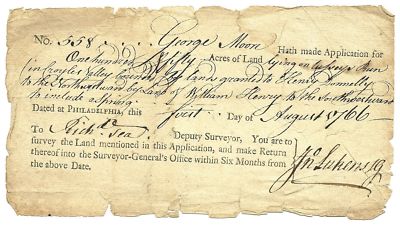 No. 558 George Moon Hath made Application for
One hundred & Fifty Acres of Land lying on Lusseys Run
in Coyles Valley bounded by lands granted to Henry Donnelly
to the Northward by Land of William Henry to the Southwestward
to include a Spring
Dated at PHILADELPHIA, this first Day of August 1766
To Richd. Tea Deputy Surveyor, You are to
survey the Land mentioned in this Application, and make Return
thereof into the Surveyor-General's Office within Six Months from
the above Date. Jno. Lukens SG